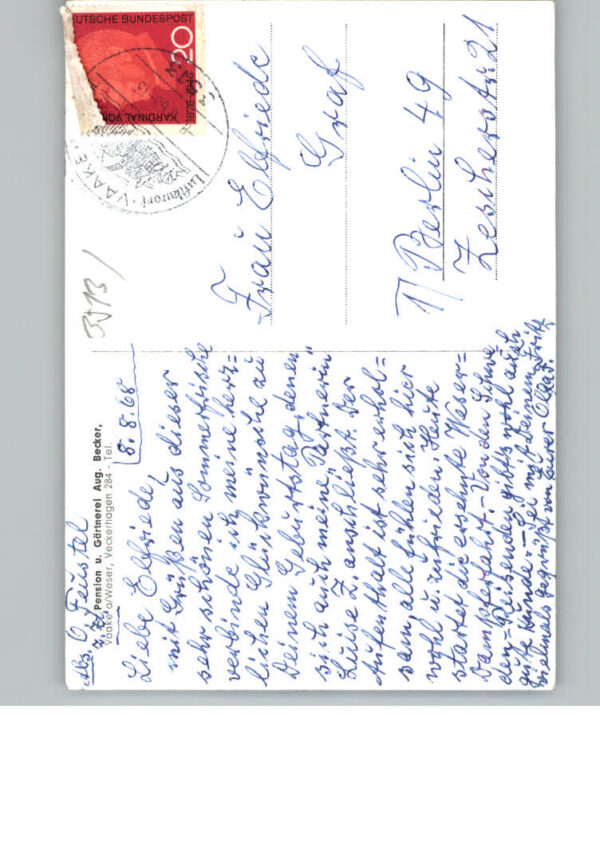 Abs. O Feistel
z. Zt. Pension u. Gärtnerei Aug. Becker,
Vaake a/Weser, Veckerhagen 284 - Tel.
8. 8. 68
Liebe Elfriede,
mit Grüßen aus dieser
sehr schönen Sommerfrische
verbinde ich meine herz-
lichen Glückwünsche zu
Deinem Geburtstag, denen
sich auch meine "Partnerin"
Luise Z. anschließt. Der
Aufenthalt ist sehr erhol-
sam, alle fühlen sich hier
wohl u. zufrieden. Heute
startet die ersehnte Weser-
Dampferfahrt. - Von den Schwe-
den-Reisenden gibt's wohl auch
gute Kunde. - Sei mit Deinem Fritz
vielmals gegrüßt von Eurer
3513/
DEUTSCHE BUNDESPOST
20
KARDINAL VON
1878-1946
Luftkurort · VAAKE
Frau Elfriede
Graf
1/ Berlin 49
Zescherstr. 21